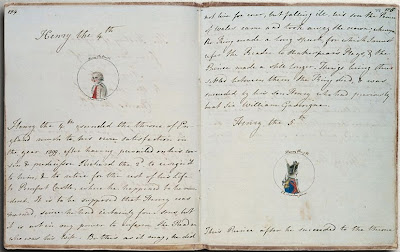 Henry the 4th
Henry the 4th ascended the throne of En
gland much to his own satisfaction in
the year 1399, after having prevailed on his cou
sin & predecessor Richard the 2d to resign it
to him, & to retire for the rest of his Life
to Pomfret Castle, where he happened to be mur
dered. It is to be supposed that Henry was
married, since he had certainly four sons, but
it is not in my power to inform the Reader
who was his Wife. Be this as it may, he did
not live for ever, but falling ill, his son the Prince
of Wales came and took away the crown; whereupon
the King made a long speech, for which I must
refer the Reader to Shakespear's Plays, & the
Prince made a still longer. Things being thus
settled between them the King died, & was
succeeded by his son Henry who had previously
beat Sir William Gascoigne.
Henry the 5th
This Prince after he succeeded to the throne